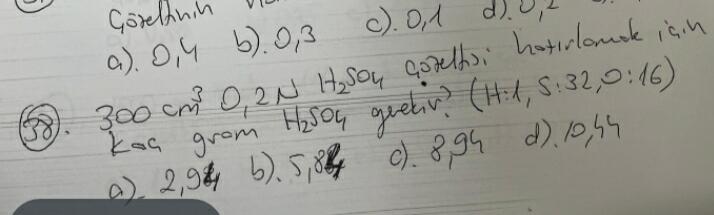 Çözeltinin
a). 0,4 b). 0,3 c). 0,1 d). 0,2
38. 300 cm³ 0,2N H₂SO₄ çözeltisi hazırlamak için
kaç gram H₂SO₄ gerekir? (H:1, S:32, O:16)
a). 2,94 b). 5,84 c). 8,94 d). 10,44